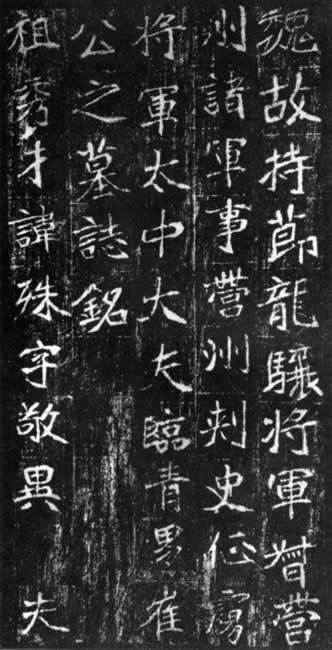 魏故持節龍驤將軍督營
州諸軍事營州刺史征虜
將軍太中大夫臨青男崔
公之墓誌銘
祖秀才諱殊字敬異 夫